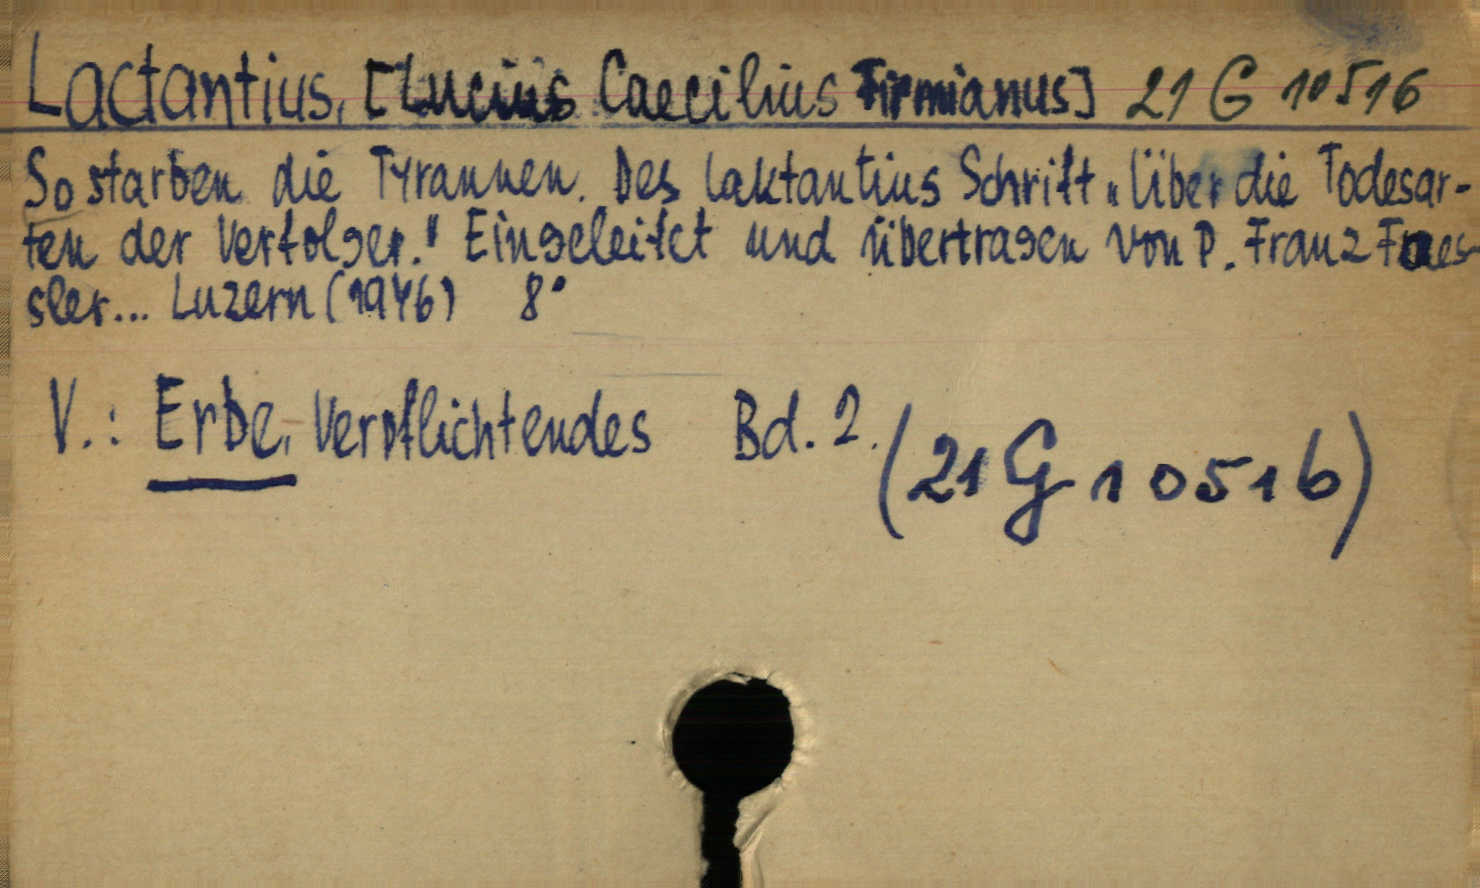 Lactantius, [Lucius Caecilius Firmianus] 21 G 10516
So starben die Tyrannen. Des Laktantius Schrift „Über die Todesar-
ten der Verfolger." Eingeleitet und übertragen von P. Franz Faes-
sler... Luzern (1946) 8°
V.: Erbe, Verpflichtendes Bd. 2.
(21 G 10516)